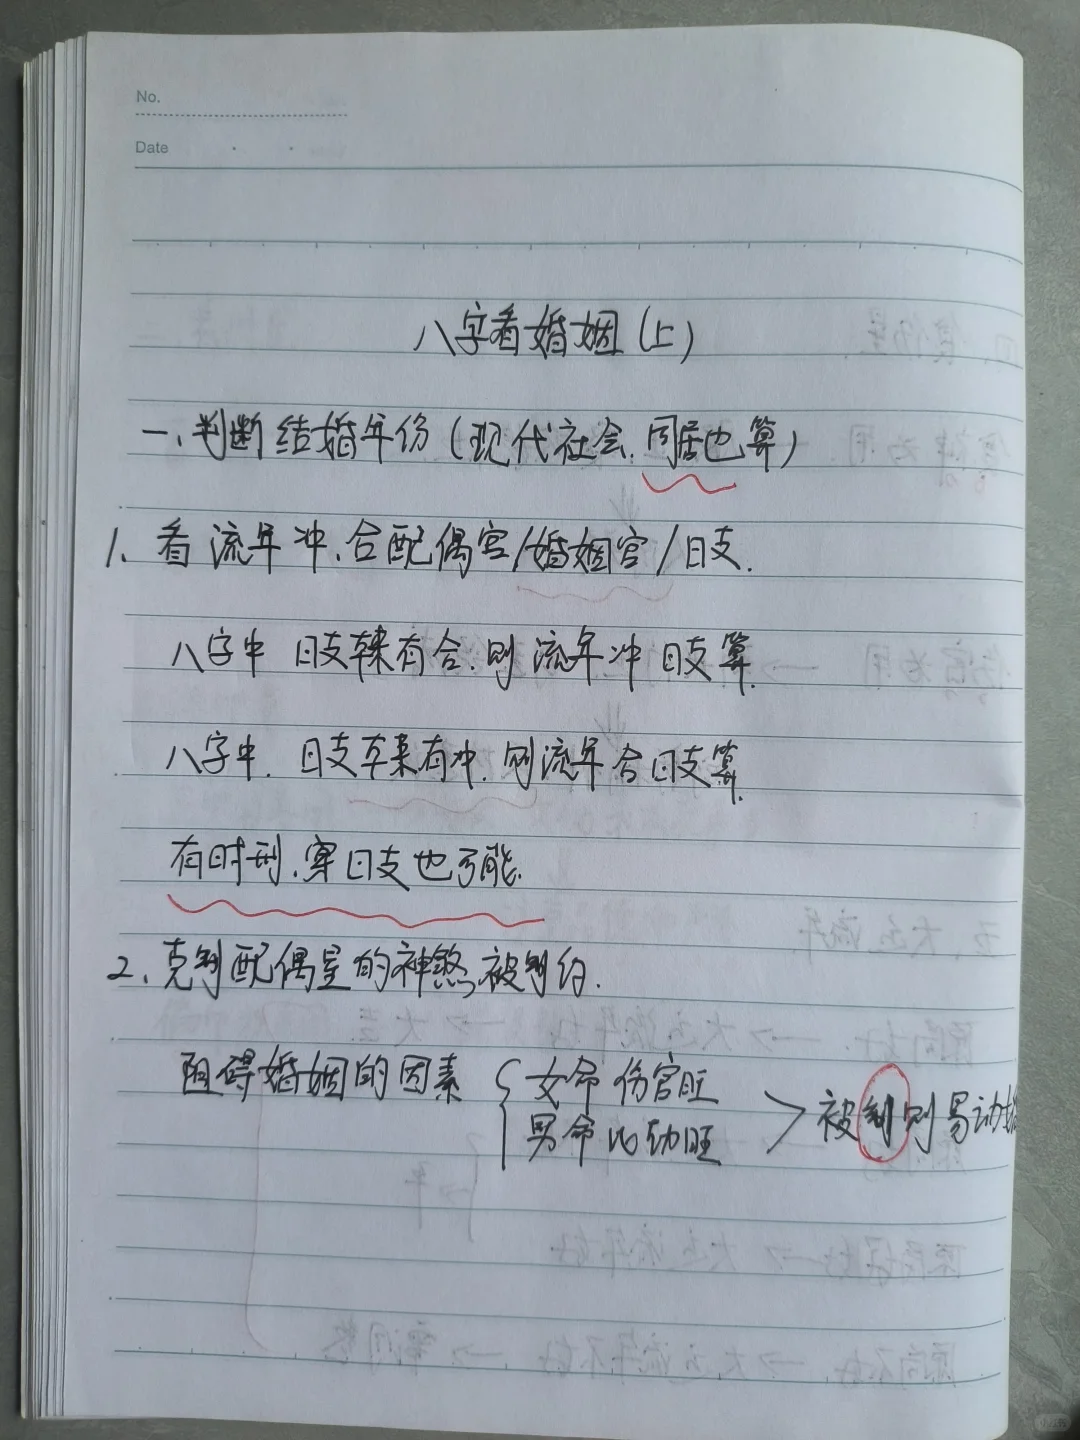 No.
Date
八字看婚姻(上)
一、判断结婚年份(现代社会.同居也算)
1、看流年冲、合配偶宫/婚姻宫/日支.
八字中 日支本来有合.则流年冲日支算.
八字中.日支本来有冲.则流年合日支算.
有时刑.穿日支也可能.
2、克制配偶星的神煞被制约.
阻碍婚姻的因素
女命伤官旺
男命比劫旺
被制则易动婚